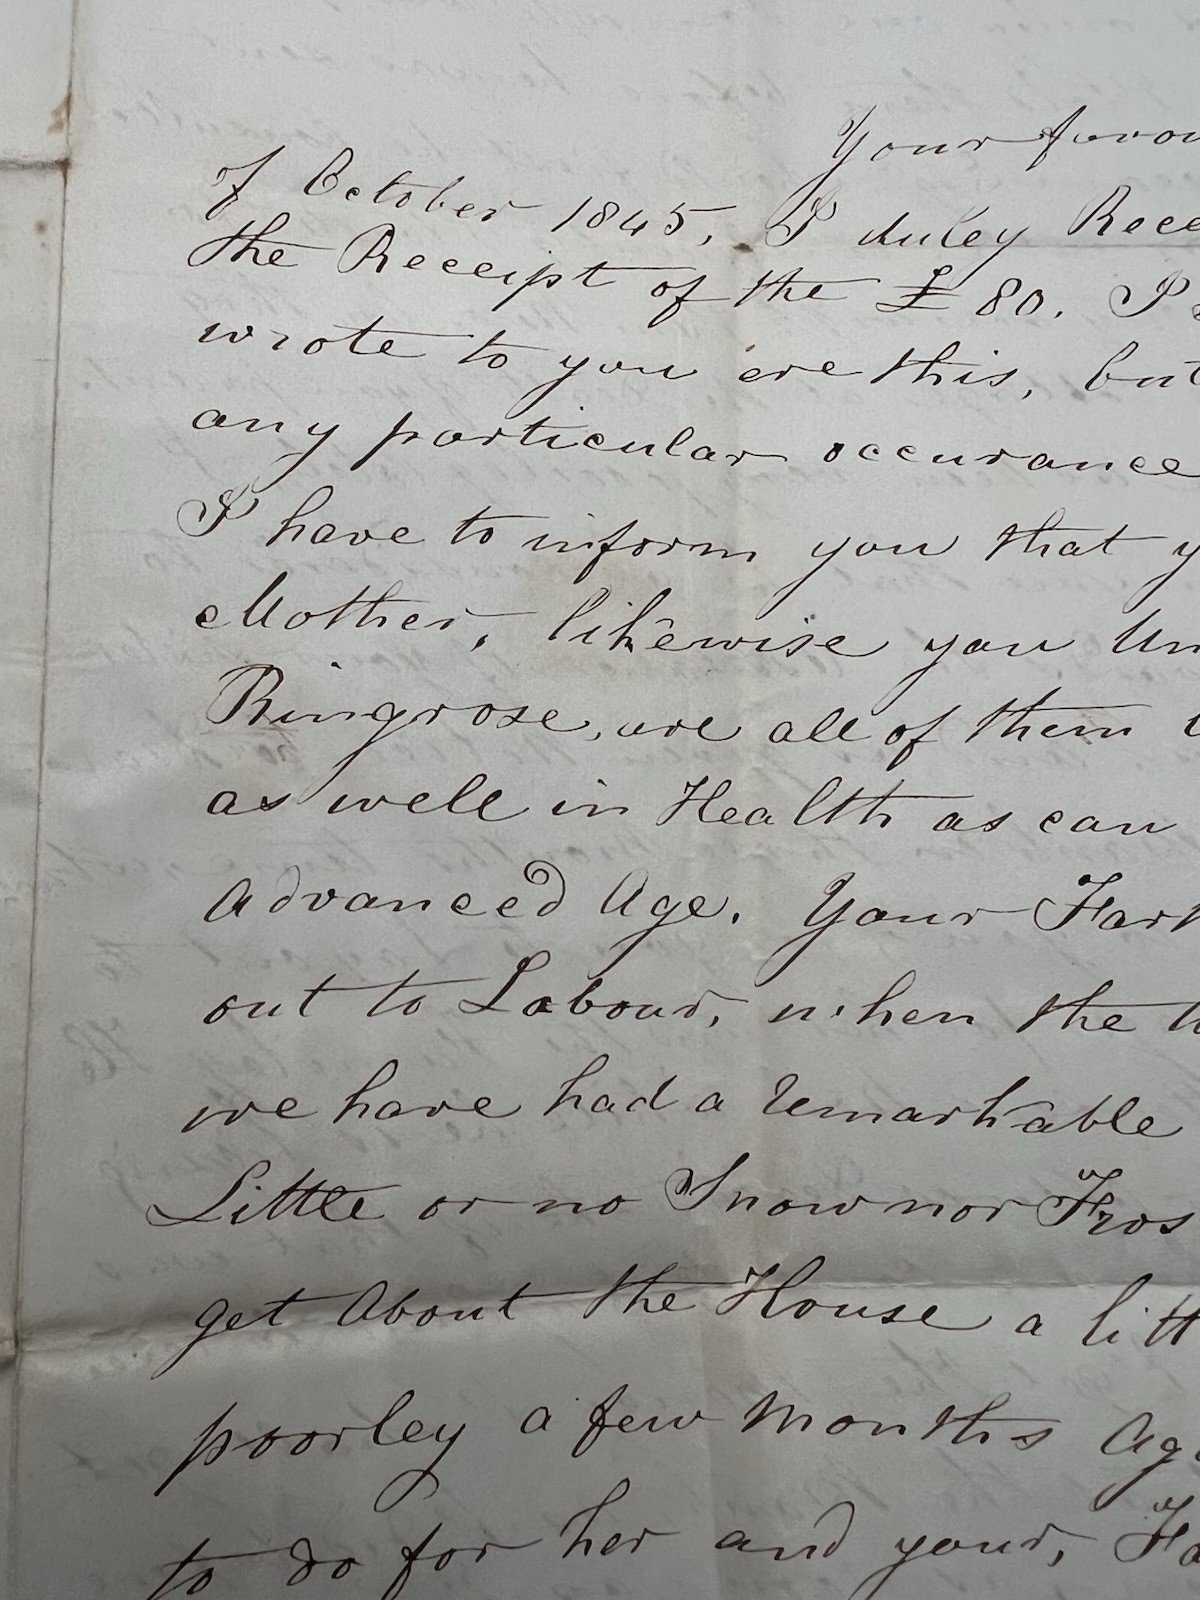 Your favou
of October 1845, I duley Rece
the Receipt of the £ 80. I
wrote to you ere this, but
any particular occurance
I have to inform you that y
Mother, likewise you Un
Ringrose, are all of them
as well in Health as can
advanced Age. Your Farth
out to Labour, when the W
we have had a remarkable
Little or no Snow nor Fros
get About the House a litt
poorley a few Months Ag
to do for her and your, Fa